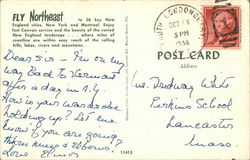 FLY Northeast
to 36 key New
England cities, New York and Montreal. Enjoy
fast Convair service and the beauty of the varied
New England landscape ... where miles of
coastline are within easy reach of the rolling
hills, lakes, rivers and mountains.
SOUTH LONDONDERRY
OCT 14
1956
POST CARD
Dear Sis - I'm on my
way back to Vermont
after a day in N.Y.
How is your wardrobe
holding up? Let me
know how you are going
thru knees & elbows!
Love Elinor
Mr. Dudway White
Perkins School
Lancaster
Mass.
11415